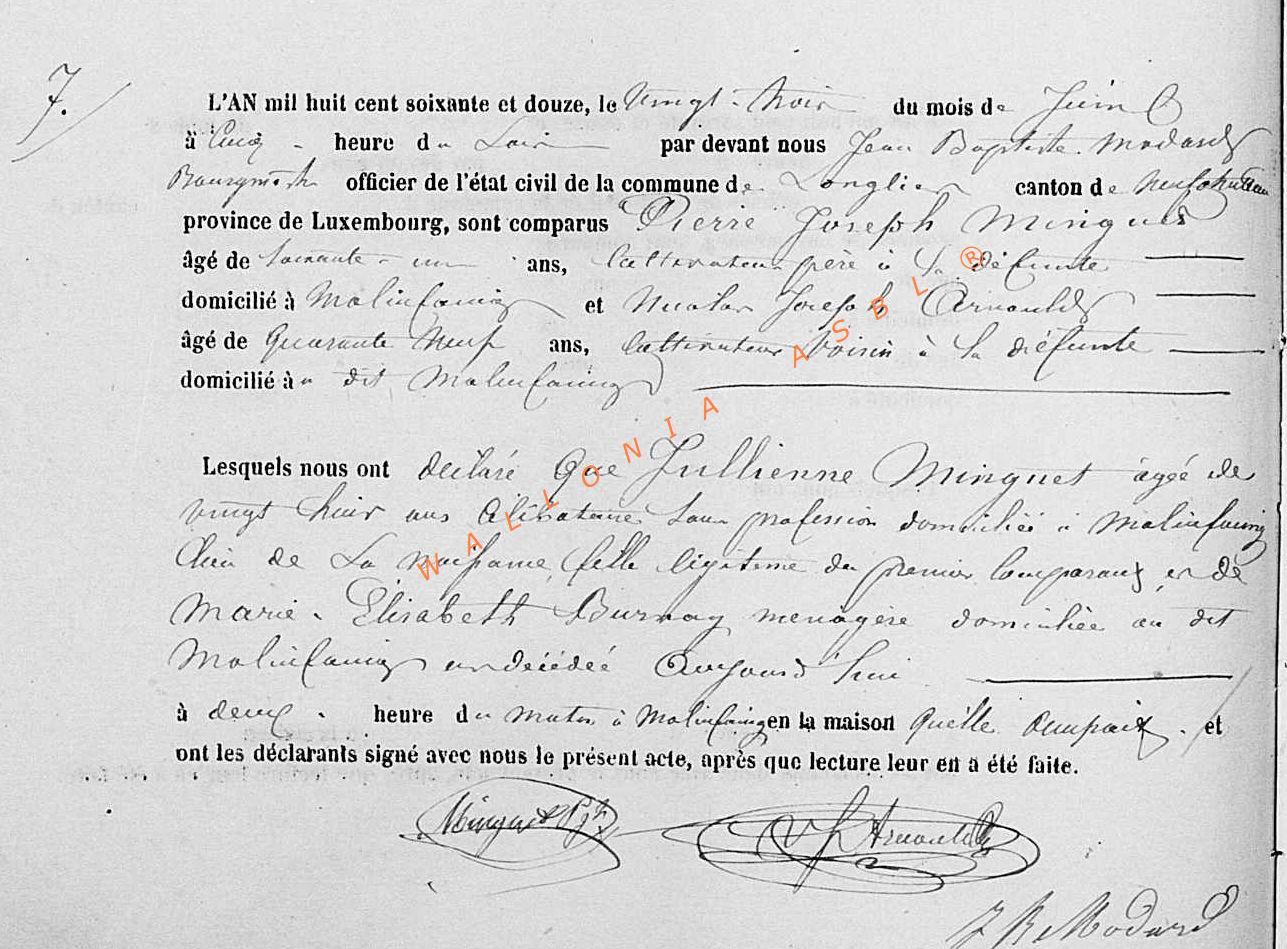 7.
L'AN mil huit cent soixante et douze, le vingt-trois du mois de Juin
à cinq heure du soir par devant nous Jean Baptiste Modard
Bourgmestre officier de l'état civil de la commune de Longlier canton de Neufchateau
province de Luxembourg, sont comparus Pierre Joseph Minguet
âgé de soixante-un ans, Cultivateur père à la défunte
domicilié à Molinfaing et Nicolas Joseph Arnould
âgé de Quarante Neuf ans, Cultivateur Voisin à la défunte
domicilié à dit Molinfaing
Lesquels nous ont déclaré que Jullienne Minguet âgée de
vingt huit ans Célibataire sans profession domiciliée à Molinfaing
lieu de sa naissance, fille légitime du premier Comparant et de
Marie-Elisabeth Burnay menagère domiciliée au dit
Molinfaing est décédée Aujourd'hui
à deux heure du matin à Molinfaing en la maison qu'elle occupait et
ont les déclarants signé avec nous le présent acte, après que lecture leur en a été faite.
Minguet Pjh Arnould
J B Modard
WALLONIA ASBL ®